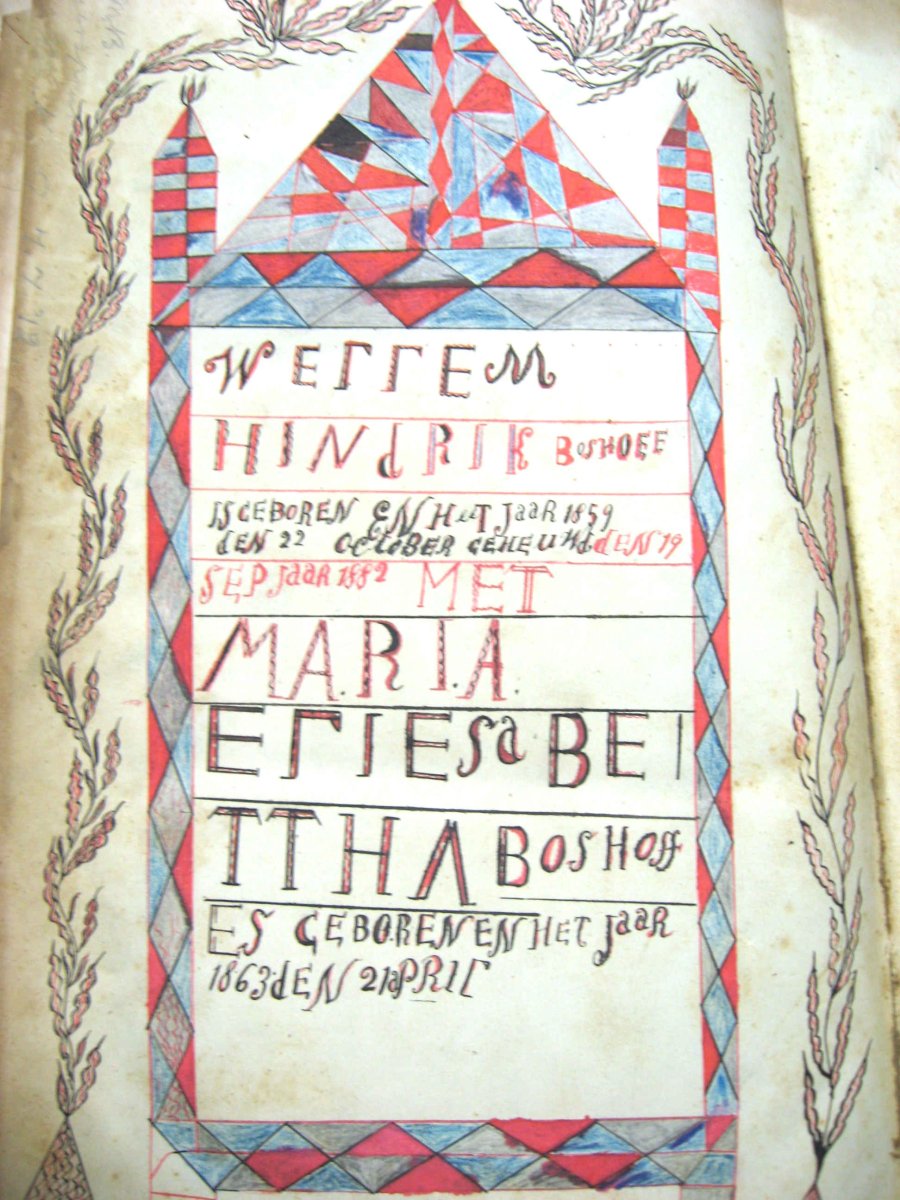 WELLEM
HINdRIK BosHOFF
IS GEBOREN EN HeT JaaR 1859
dEN 22 OCToBER GEHEUWd dEN 19
SEP JaaR 1882 MET
MARIA.
ELIESa BEI
TTHA BosHoff
ES GEBOREN EN HET JaaR
1863 dEN 21 aPRIL